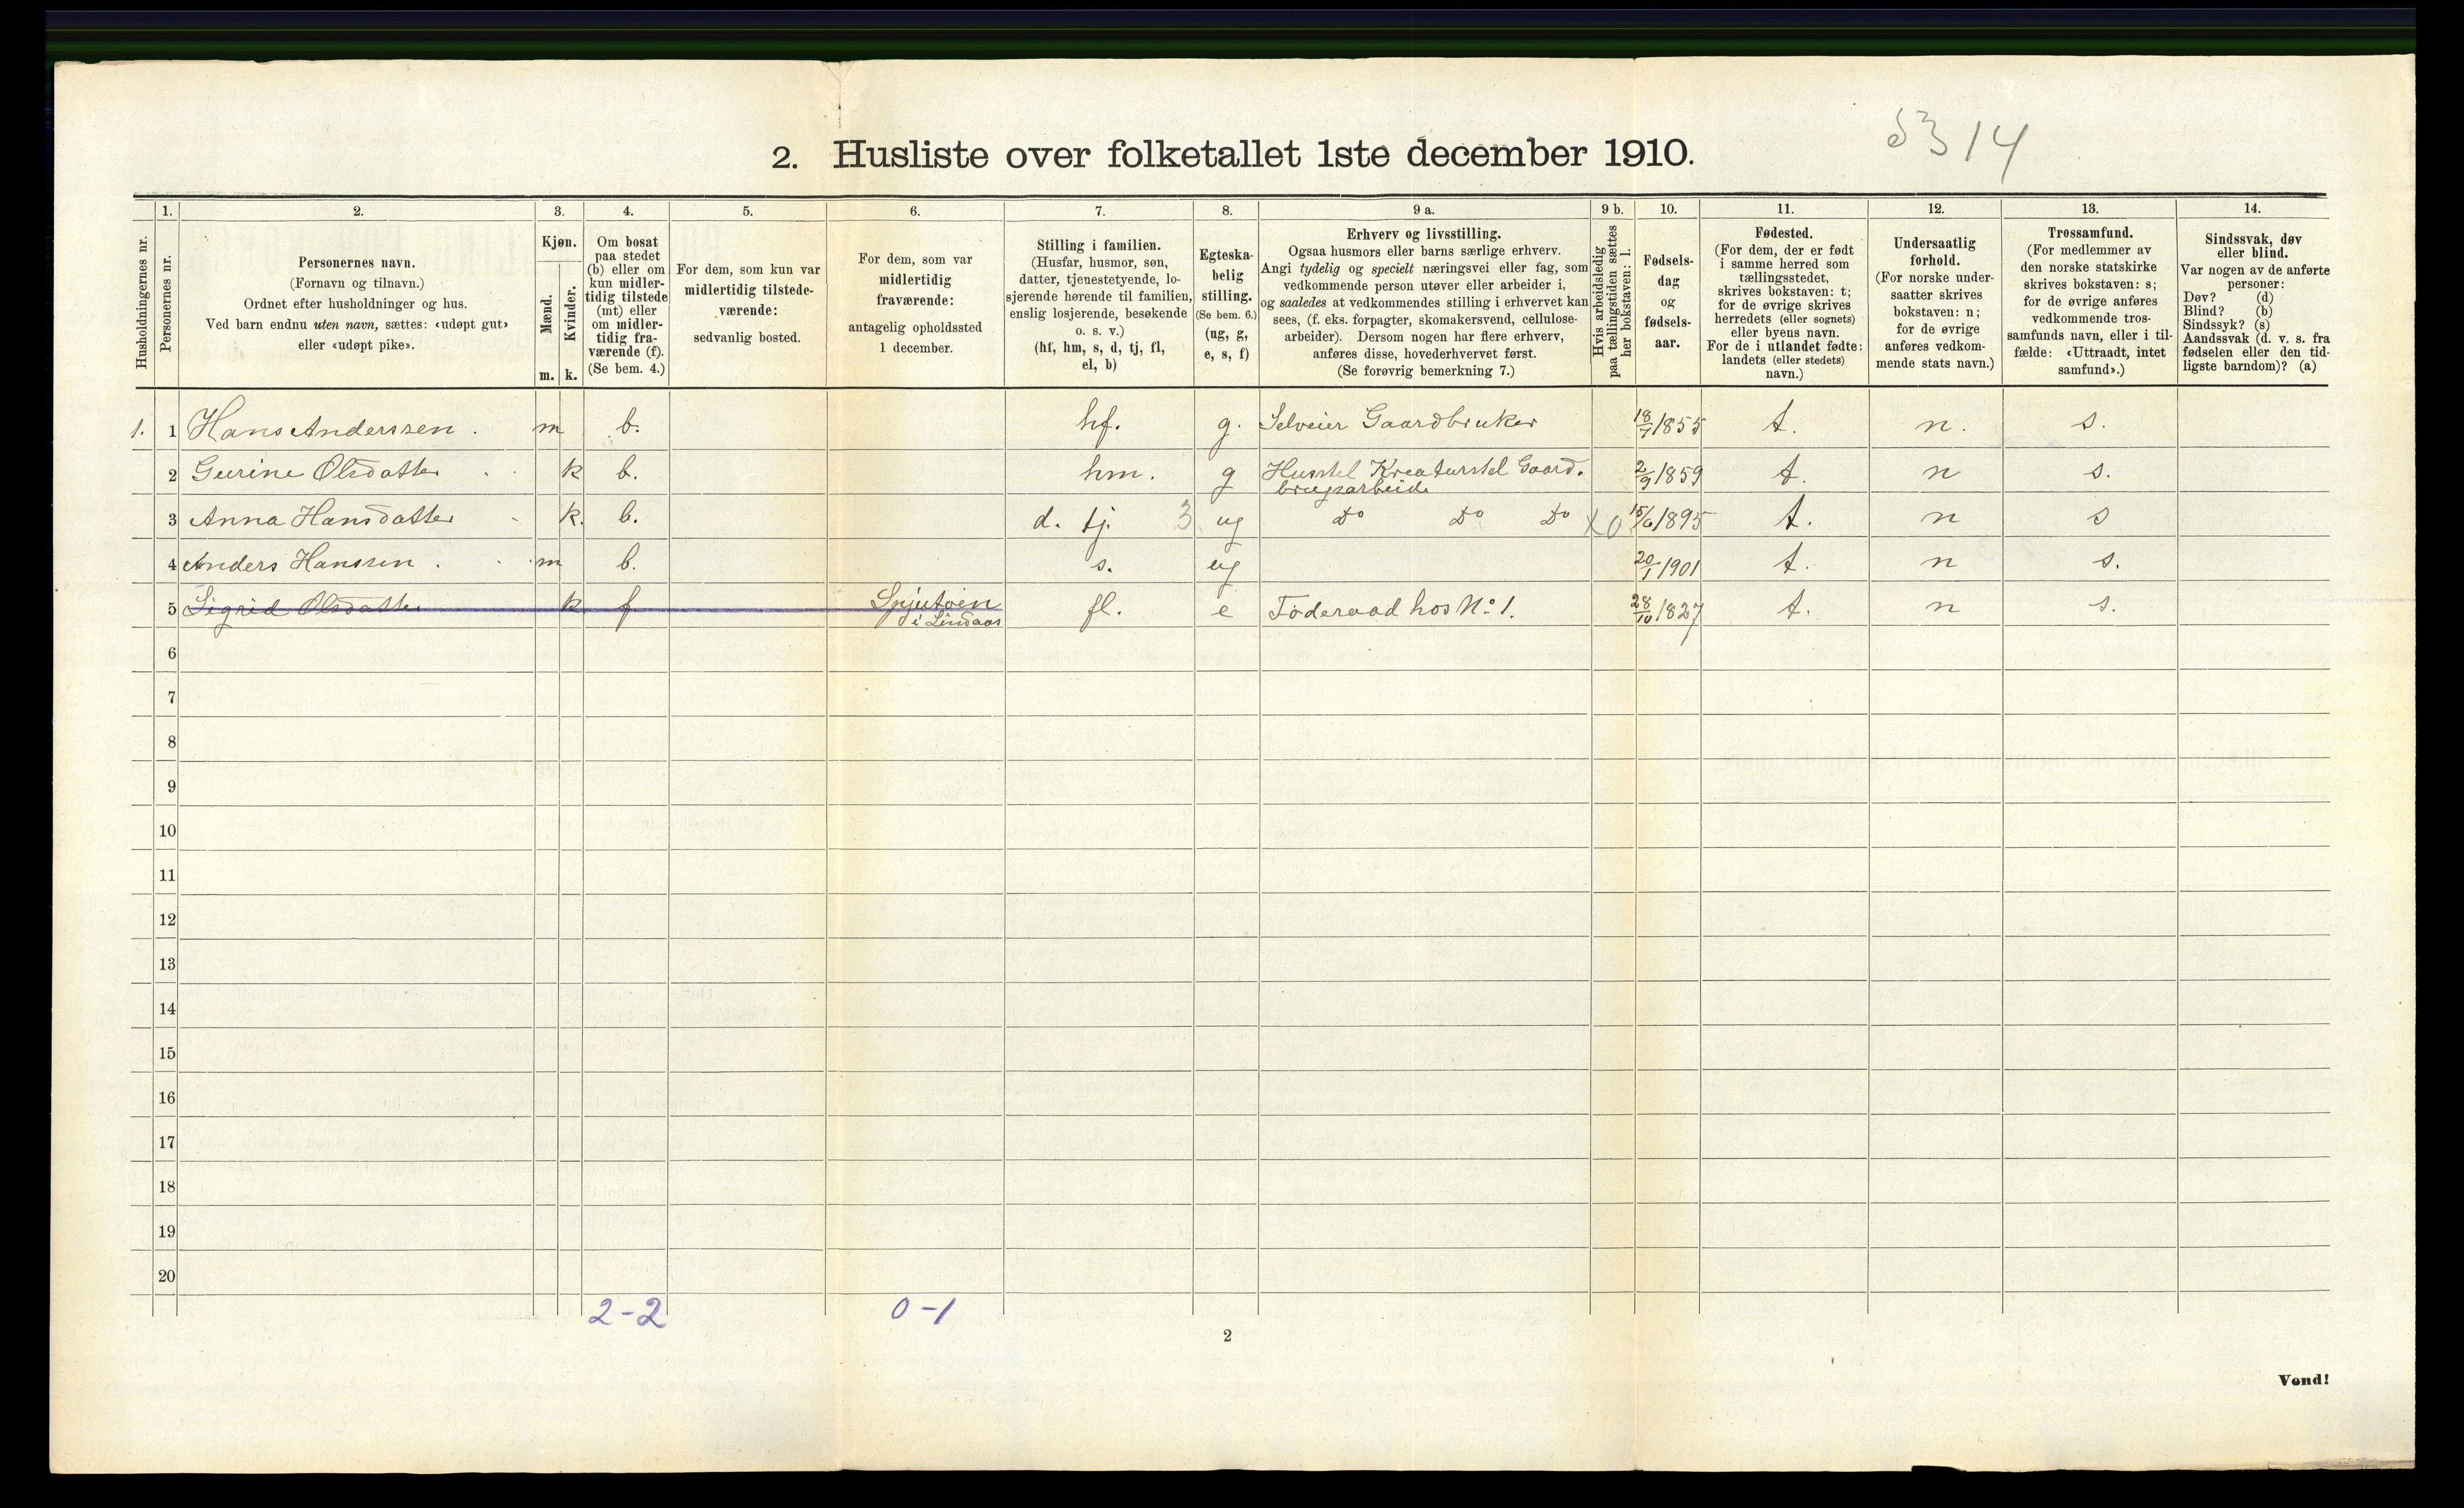 5314
2. Husliste over folketallet 1ste december 1910.
1. 2. 3. 4. 5. 6. 7. 8. 9 a. 9 b. 10. 11. 12. 13. 14.
Husholdningernes nr.
Personernes nr.
Personernes navn.
(Fornavn og tilnavn.)
Ordnet efter husholdninger og hus.
Ved barn endnu uten navn, sættes: «udøpt gut»
eller «udøpt pike».
Kjøn.
Mænd.
Kvinder.
m. k.
Om bosat
paa stedet
(b) eller om
kun midler-
tidig tilstede
(mt) eller
om midler-
tidig fra-
værende (f).
(Se bem. 4.)
For dem, som kun var
midlertidig tilstede-
værende:
sedvanlig bosted.
For dem, som var
midlertidig
fraværende:
antagelig opholdssted
1 december.
Stilling i familien.
(Husfar, husmor, søn,
datter, tjenestetyende, lo-
sjerende hørende til familien,
enslig losjerende, besøkende
o. s. v.)
(hf, hm, s, d, tj, fl,
el, b)
Egteska-
belig
stilling.
(Se bem. 6.)
(ug, g,
e, s, f)
Erhverv og livsstilling.
Ogsaa husmors eller barns særlige erhverv.
Angi tydelig og specielt næringsvei eller fag, som
vedkommende person utøver eller arbeider i,
og saaledes at vedkommendes stilling i erhvervet kan
sees, (f. eks. forpagter, skomakersvend, cellulose-
arbeider). Dersom nogen har flere erhverv,
anføres disse, hovederhvervet først.
(Se forøvrig bemerkning 7.)
Hvis arbeidsledig
paa tællingstiden sættes
her bokstaven: l.
Fødsels-
dag
og
fødsels-
aar.
Fødested.
(For dem, der er født
i samme herred som
tællingsstedet,
skrives bokstaven: t;
for de øvrige skrives
herredets (eller sognets)
eller byens navn.
For de i utlandet fødte:
landets (eller stedets)
navn.)
Undersaatlig
forhold.
(For norske under-
saatter skrives
bokstaven: n;
for de øvrige
anføres vedkom-
mende stats navn.)
Trossamfund.
(For medlemmer av
den norske statskirke
skrives bokstaven: s;
for de øvrige anføres
vedkommende tros-
samfunds navn, eller i til-
fælde: «Uttraadt, intet
samfund».)
Sindssvak, døv
eller blind.
Var nogen av de anførte
personer:
Døv? (d)
Blind? (b)
Sindssyk? (s)
Aandssvak (d. v. s. fra
fødselen eller den tid-
ligste barndom)? (a)
1. 1 Hans Anderssen. m b. hf. g. Selveier Gaardbruker 18/7 1855 t. n. s.
2 Gurine Olsdatter k b. hm. g Husstel Kreaturstel Gaard-
brugsarbeide 2/9 1859 t. n s.
3 Anna Hansdatter k. b. d. tj. 3 ug Do Do Do X 0 15/6 1895 t. n s
4 Anders Hanssen. m b. s. ug 20/1 1901 t. n s.
5 Sigrid Olsdatter k f Spjutøen
i Lindaas fl. e Føderaad hos No 1. 28/10 1827 t. n s.
6
7
8
9
10
11
12
13
14
15
16
17
18
19
20
2-2 0-1
2
Vend!